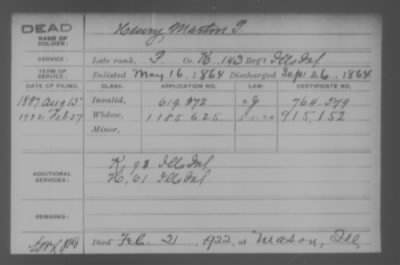 DEAD
NAME OF SOLDIER: Henry, Martin T.
SERVICE: Late rank, P. Co. K, 143 Reg't Ills Inf
TERM OF SERVICE: Enlisted May 16, 1864 Discharged Sept 26, 1864
DATE OF FILING. CLASS. APPLICATION NO. LAW. CERTIFICATE NO.
1887 Aug 15 Invalid, 619.372 764.579
1922 Feb 27 Widow, 1185625 915,152
Minor,
ADDITIONAL SERVICES: K, 93 Ills Inf
H, 61 Ills Inf
REMARKS:
Died Feb. 21, 1922, at Mason, Ill